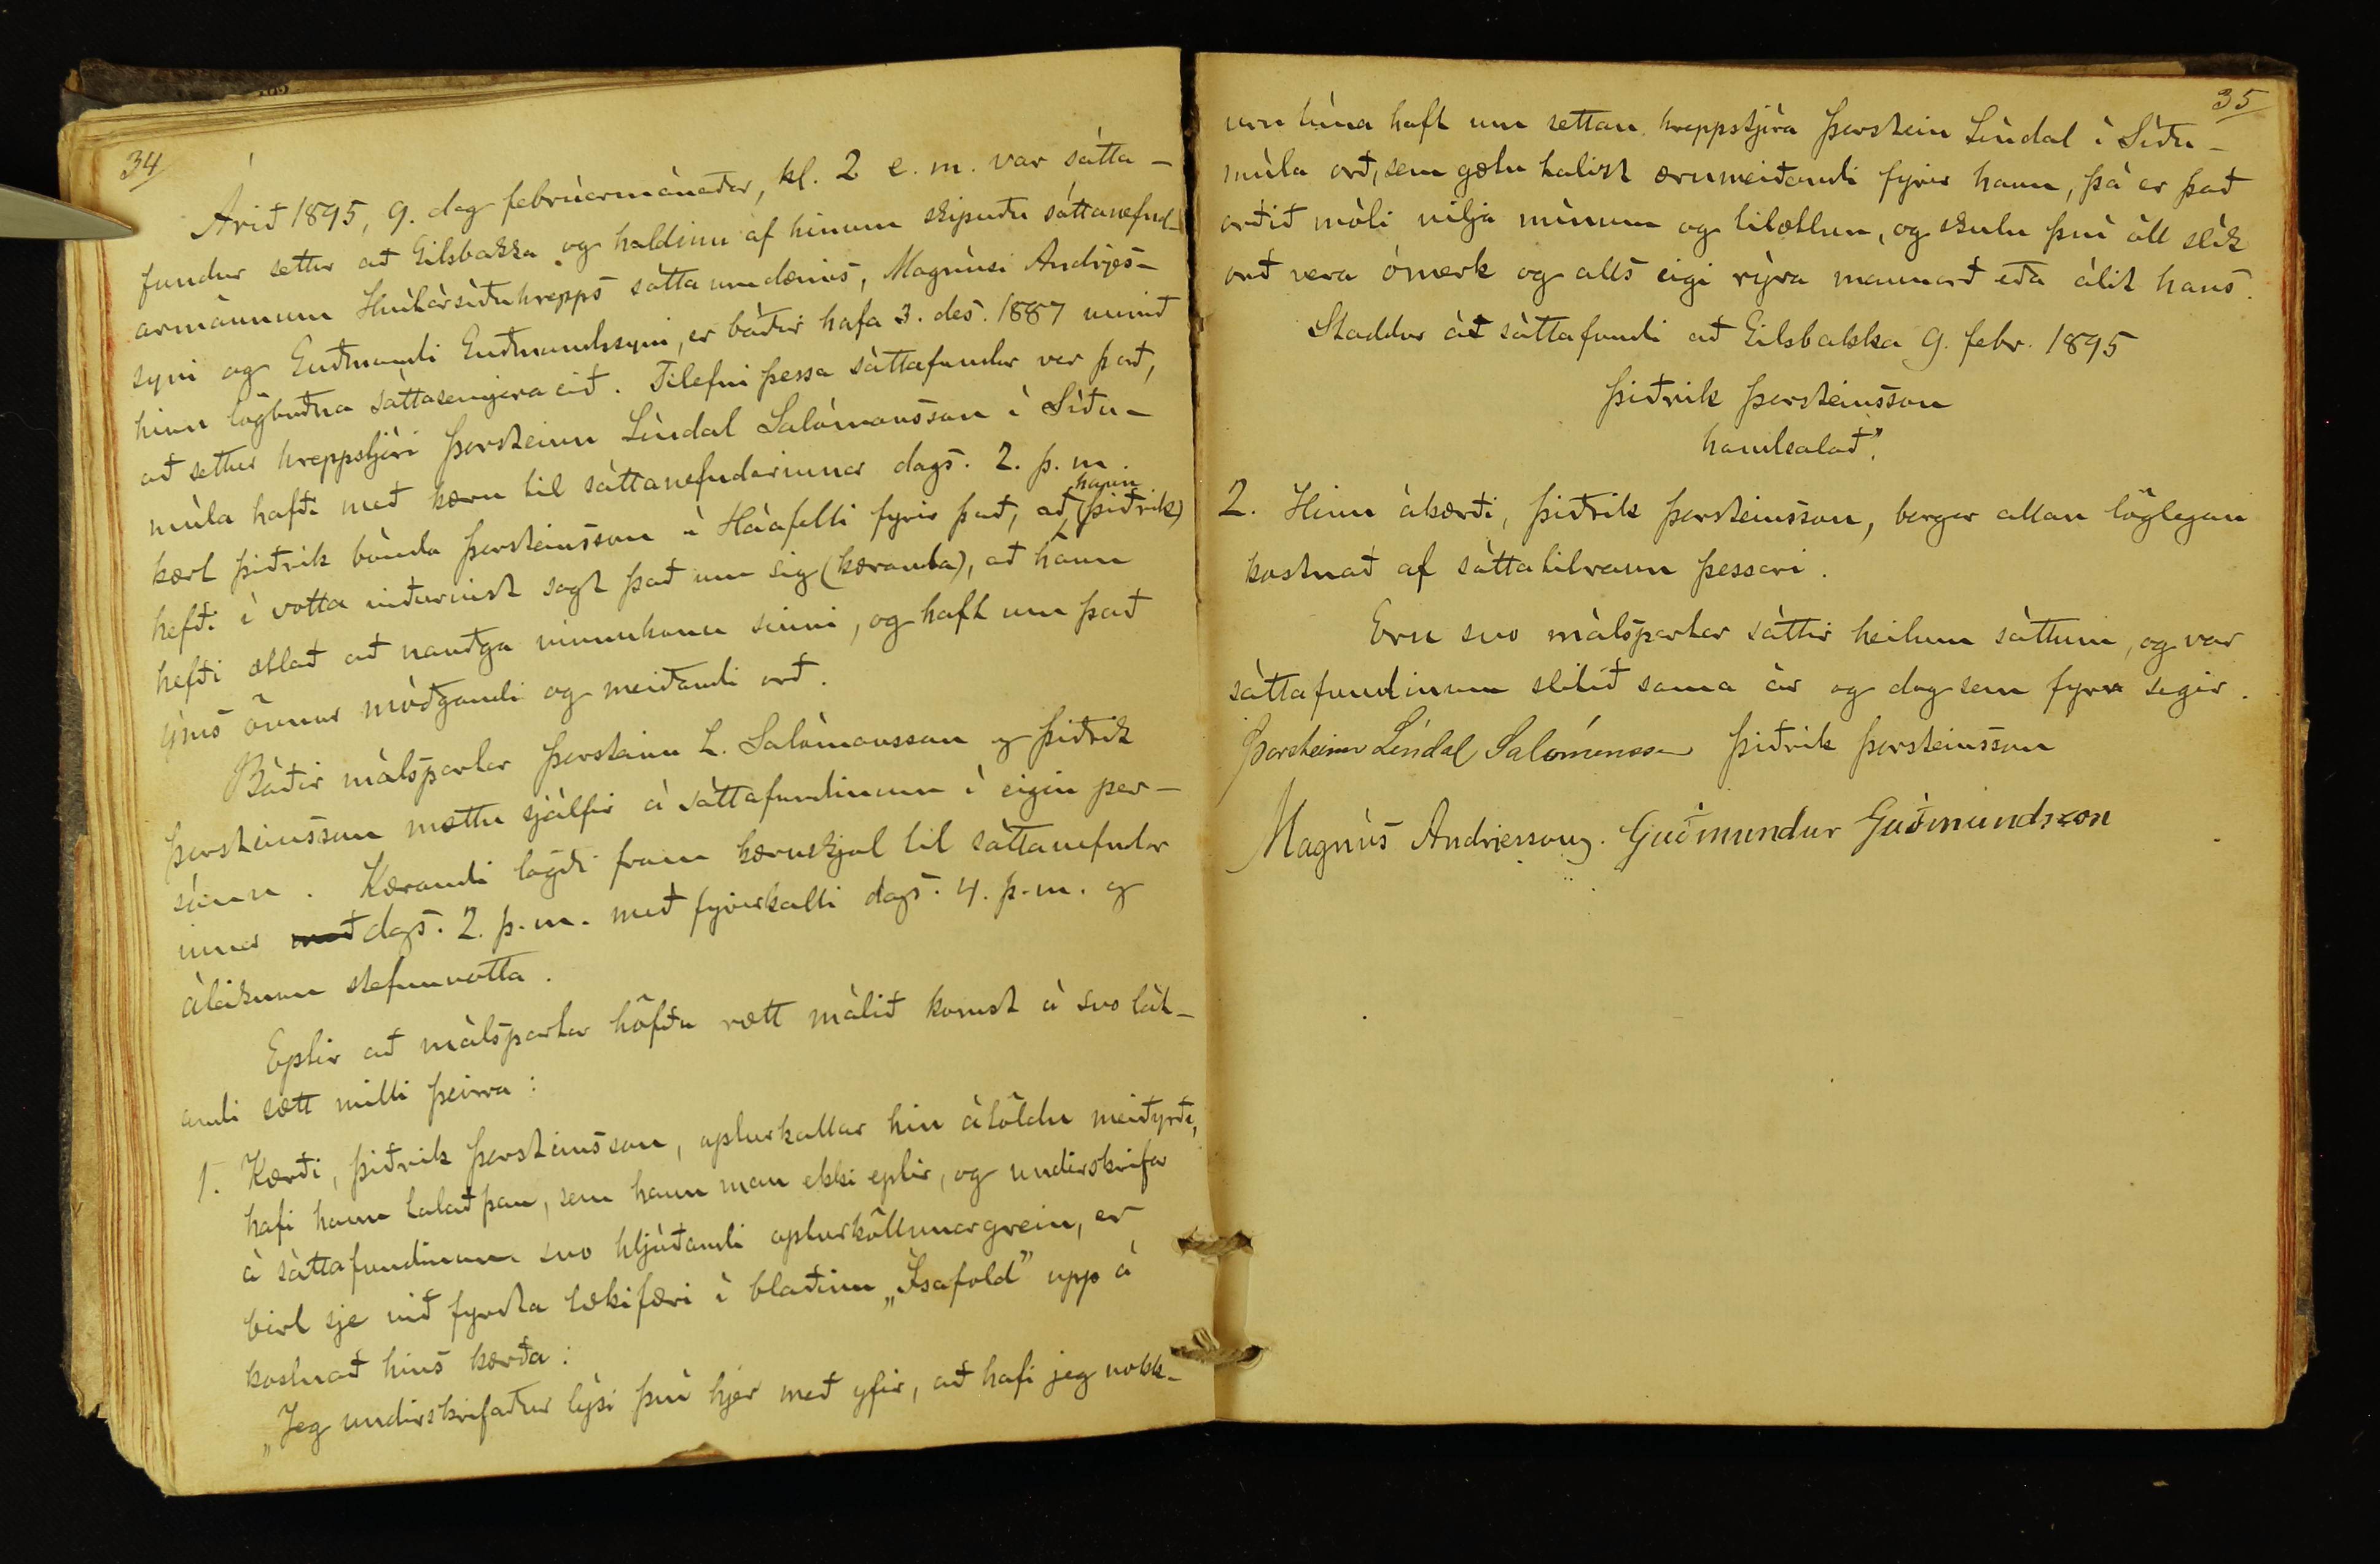 34
Árið 1895, 9. dag febrúarmánaðar, kl. 2 e. m. var sátta-
fundur settur að Gilsbakka og haldinn af hinum skipuðu sáttanefnd-
armönnum Hvítársíðuhrepps sáttaumdæmis, Magnúsi Andrjes-
syni og Guðmundi Guðmundssyni, er báðir hafa 3. des. 1887 unnið
hinn lögboðna sáttasemjara eið. Tilefni þessa sáttafundar var það,
að settur hreppstjóri Þorsteinn Líndal Salómonsson í Síðu-
múla hafði með kæru til sáttanefndarinnar dags. 2. þ. m.
kært Þiðrik bónda Þorsteinsson á Háafelli fyrir það, að hann (Þiðrik)
hefði í votta viðurvist sagt það um sig (kæranda), að hann
hefði ætlað að nauðga vinnukonu sinni, og haft um það
ýms önnur móðgandi og meiðandi orð.
Báðir málspartar Þorsteinn L. Salómonsson og Þiðrik
Þorsteinsson mættu sjálfir á sáttafundinum í eigin per-
sónu. Kærandi lagði fram kæruskjal til sáttanefndar
innar með dags. 2. þ. m. með fyrirkalli dags. 4. þ. m. og
áteiknun stefnuvotta.
Eptir að málspartar höfðu rætt málið komst á svo lát-
andi sætt milli þeirra:
1. Kærði, Þiðrik Þorsteinsson, apturkallar hin átöldu meiðyrði,
hafi hann talað þau, sem hann man ekki eptir, og undirskrifar
á sáttafundinum svo hljóðandi apturköllunargrein, er
birt sje við fyrsta tækifæri í blaðinu „Ísafold" upp á
kostnað hins kærða:
„Jeg undirskrifaður lýsi því hjer með yfir, að hafi jeg nokk-
35
urn tíma haft um settan hreppstjóra Þorstein Líndal í Síðu-
múla orð, sem gætu talist ærumeiðandi fyrir hann, þá er það
orðið móti vilja mínum og tilætlun, og skulu því öll slík
orð vera ómerk og alls eigi rýra mannorð eða álit hans.
Staddur á sáttafundi að Gilsbakka 9. febr. 1895
Þiðrik Þorsteinsson
handsalað".
2. Hinn ákærði, Þiðrik Þorsteinsson, borgar allan löglegan
kostnað af sáttatilraun þessari.
Eru svo málspartar sáttir heilum sáttum, og var
sáttafundinum slitið sama ár og dag sem fyrr segir.
Þorsteinn Líndal Salómonsson Þiðrik Þorsteinsson
Magnús Andrjesson. Guðmundur Guðmundsson